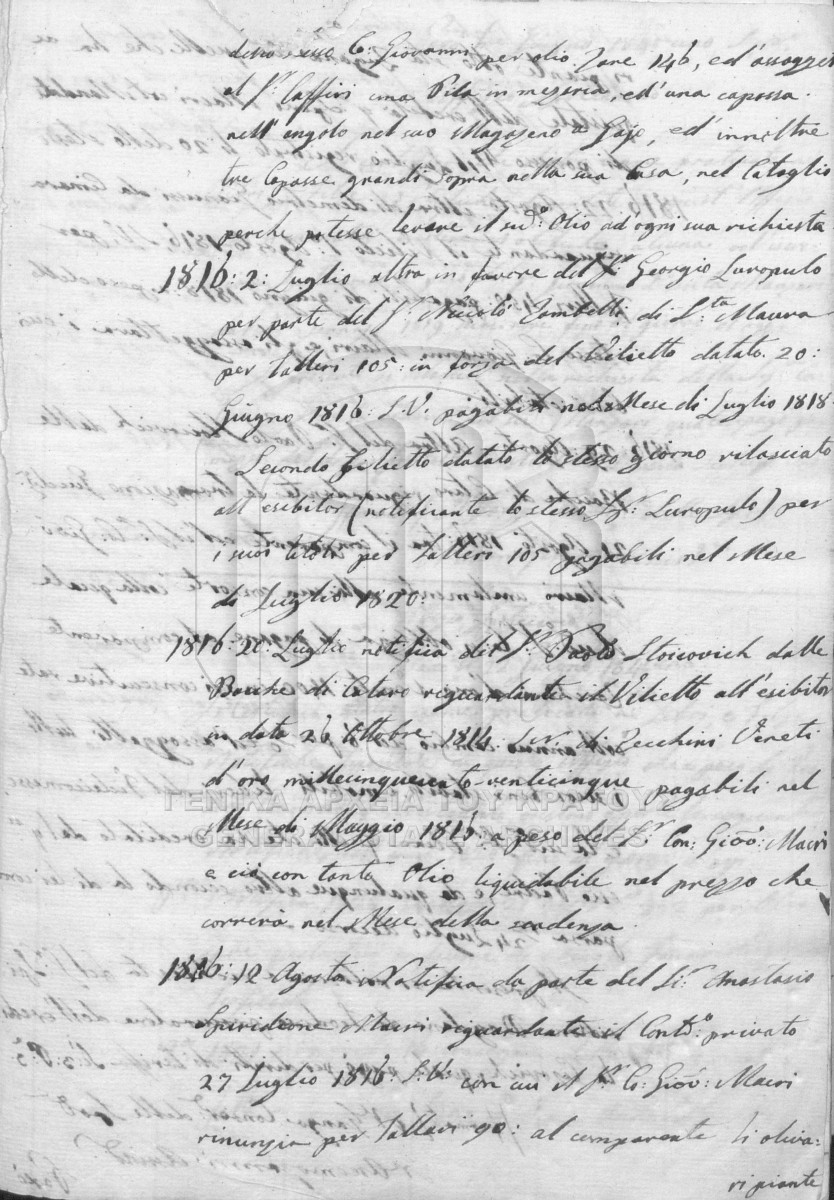 detto esso C: Giovanni per olio Zare 146, ed'assogget
al Sr. Caffiri una Pila in mezaria, ed'una capassa
nell'angolo nel suo Magazeno a Gajo, ed'innoltre
tre Capasse grandi sopra nella sua Casa, nel Catoglio
perche potesse levare il sud.o Olio ad'ogni sua richiesta
1816: 2: Luglio altra in favore del Sr. Georgio Luropulo
per parte del Sr. Niccolò Zambelli di S.ta Maura
per talleri 105: in forza del Vilietto datato 20:
Giugno 1816: S.V. pagabili nel Mese di Luglio 1818:
Secondo Vilietto datato lo stesso giorno rilasciato
all'esibitor (notificante lo stesso Sr. Luropulo) per
i suoi titoli per talleri 105 pagabili nel Mese
di Luglio 1820:
1816: 20: Luglio notifica del Sr. Paolo Stoicovich dalle
Bocche di Cataro riguardante il Vilietto all'esibitor
in data 26 Ottobre 1814: S.N. di Zecchini Veneti
d'oro millecinquecento venticinque pagabili nel
Mese di Maggio 1816: a peso del Sr. Con: Gioo: Macri
e ciò con tanto Olio liquidabile nel prezzo che
correrà nel Mese della scadenza
ΓΕΝΙΚΑ ΑΡΧΕΙΑ ΤΟΥ ΚΡΑΤΟΥΣ
GENERAL STATE ARCHIVES
1816: 12 Agosto Notifica da parte del Sr. Anastasio
Spiridione Macri riguardante il Contd.o privato
27 Luglio 1816: S.V. con cui il Sr. Co: Gioo: Macri
rinunzia per tallari 90: al comparente li oliva:
ri piante